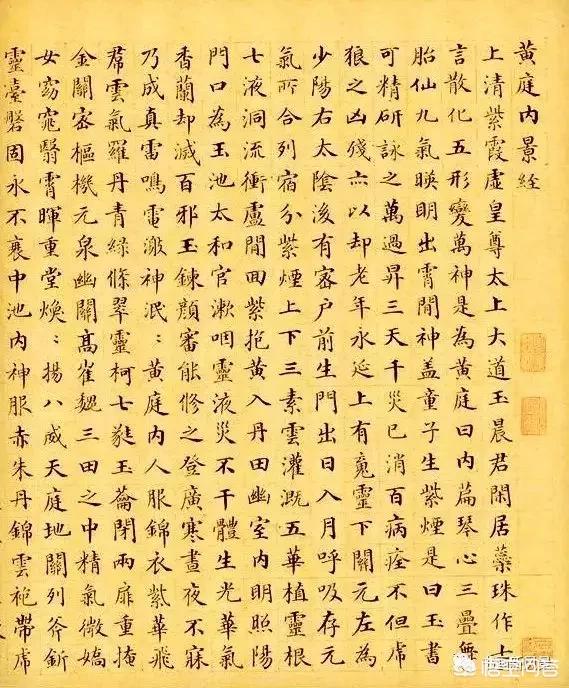 黄庭内景經
上清紫霞虛皇尊太上大道玉晨君閑居蘂珠作七
言散化五形變萬神是為黃庭曰内篇琴心三疊舞
胎仙九氣暎明出霄閒神盖童子生紫煙是曰玉書
可精研詠之萬過昇三天千災已消百病痊不但虎
狼之凶殘亦以却老年永延上有䰟靈下關元左為
少陽右太陰後有密户前生門出日入月呼吸存元
氣所合列宿分紫煙上下三素雲灌溉五華植靈根
七液洞流衝盧閒回紫抱黃入丹田幽室内明照陽
門口為玉池太和官漱咽靈液災不干體生光華氣
香蘭却滅百邪玉鍊顏審能修之登廣寒晝夜不寐
乃成真雷鳴電激神泯〻黃庭内人服錦衣紫華飛
帬雲氣羅丹青緑條翠靈柯七蕤玉蘥閉兩扉重掩
金關密樞機元泉幽關高崔巍三田之中精氣微嬌
女窈窕翳霄暉重堂煥〻揚八威天庭地關列斧鈃
靈臺磐固永不衰中池内神服赤朱丹錦雲袍帶虎
悟空问答